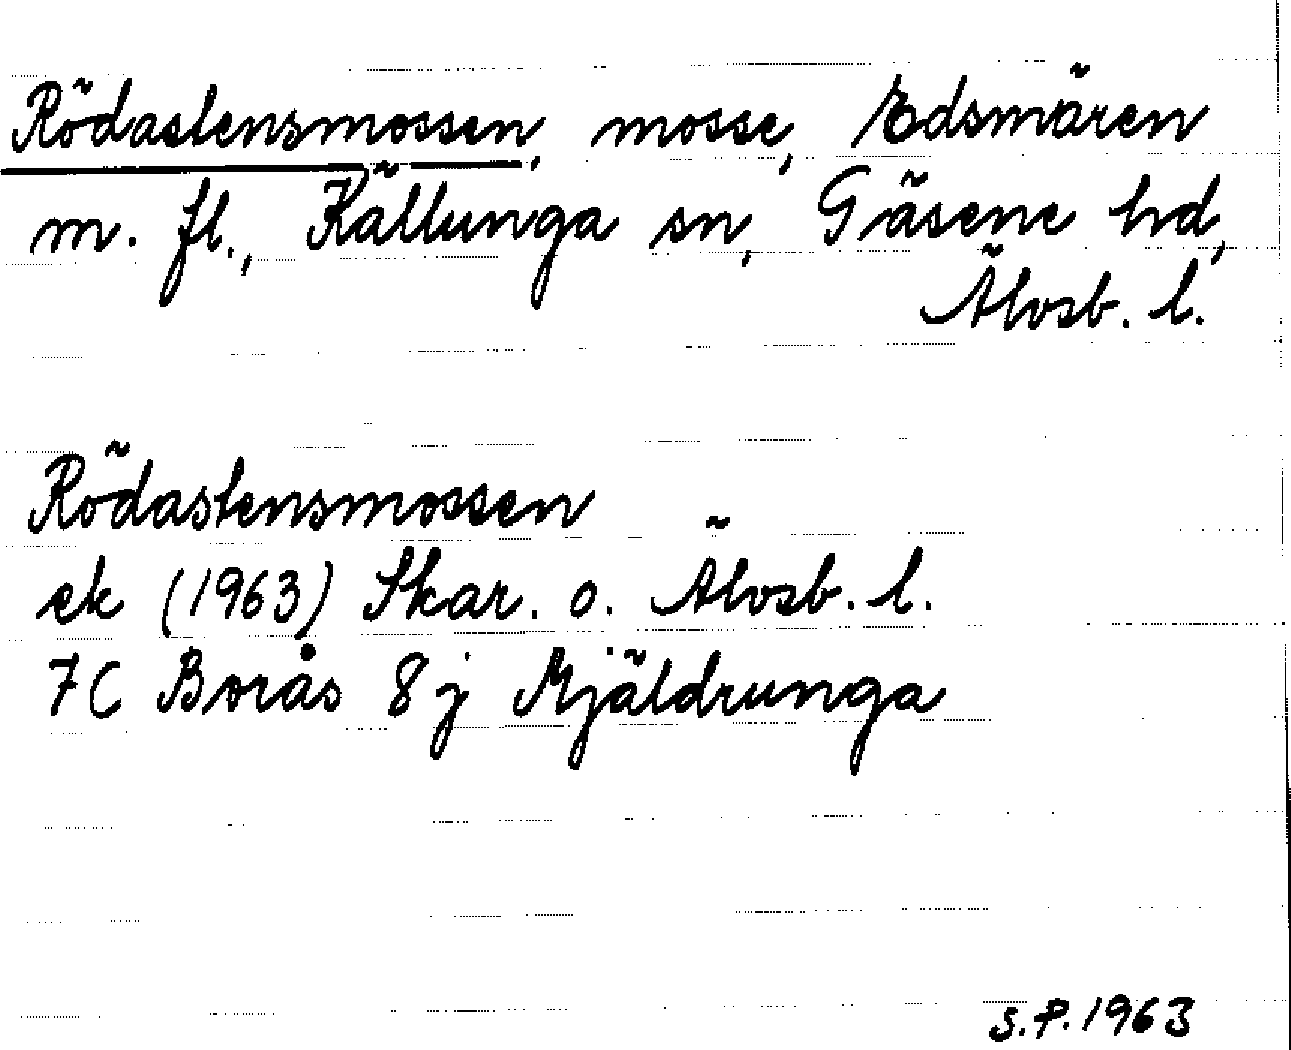 Rödastensmossen, mosse, Edsmären
m. fl., Källunga sn, Gäsene hd,
Älvsb. l.
Rödastensmossen
ek (1963) Skar. o. Älvsb. l.
7C Borås 8j Mjäldrunga
S.P. 1963